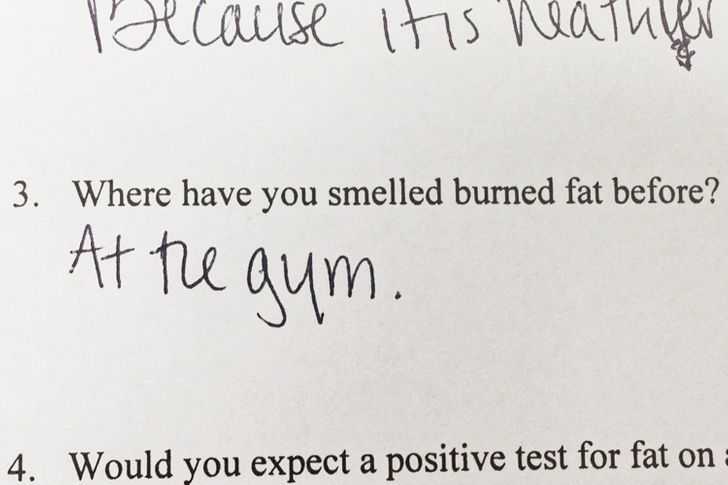 Because it is healthier
3. Where have you smelled burned fat before?
At the gym.
4. Would you expect a positive test for fat on